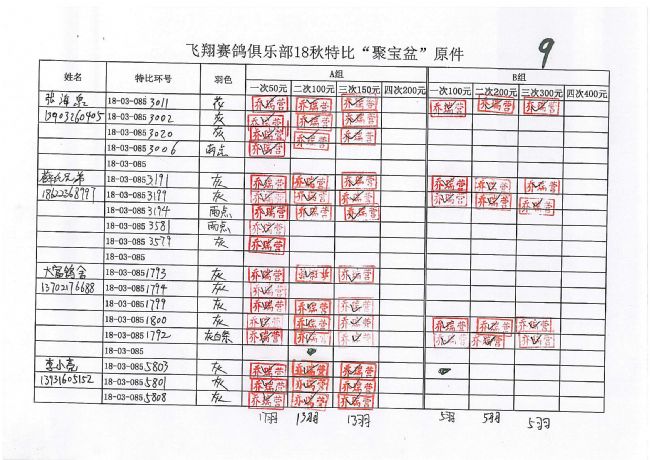 飞翔赛鸽俱乐部18秋特比“聚宝盆”原件
9
姓名 特比环号 羽色 A组 B组
一次50元 二次100元 三次150元 四次200元 一次100元 二次200元 三次300元 四次400元
张海泉 18-03-0853011 灰 乔瑞营 乔瑞营 乔瑞营 乔瑞营 乔瑞营 乔瑞营
13903260405 18-03-0853002 灰 乔瑞营 乔瑞营 乔瑞营
18-03-0853020 灰 乔瑞营 乔瑞营 乔瑞营
18-03-0853006 雨点 乔瑞营
18-03-085
兄弟 18-03-0853191 灰 乔瑞营 乔瑞营 乔瑞营 乔瑞营 乔瑞营 乔瑞营
18622368997 18-03-0853199 灰 乔瑞营 乔瑞营 乔瑞营 乔瑞营 乔瑞营 乔瑞营
18-03-0853194 雨点 乔瑞营 乔瑞营 乔瑞营
18-03-0853581 雨点 乔瑞营
18-03-0853579 灰 乔瑞营
18-03-085
大富鸽舍 18-03-0851793 灰 乔瑞营 乔瑞营 乔瑞营
13702176688 18-03-0851794 灰 乔瑞营
18-03-0851799 灰 乔瑞营 乔瑞营 乔瑞营
18-03-0851800 灰 乔瑞营 乔瑞营 乔瑞营 乔瑞营 乔瑞营 乔瑞营
18-03-0851792 灰白条 乔瑞营 乔瑞营 乔瑞营 乔瑞营 乔瑞营 乔瑞营
18-03-085
李小亮 18-03-0855803 灰 乔瑞营 乔瑞营 乔瑞营
13931605152 18-03-0855801 灰 乔瑞营 乔瑞营 乔瑞营
18-03-0855808 灰 乔瑞营 乔瑞营 乔瑞营
17羽 13羽 13羽 5羽 5羽 5羽